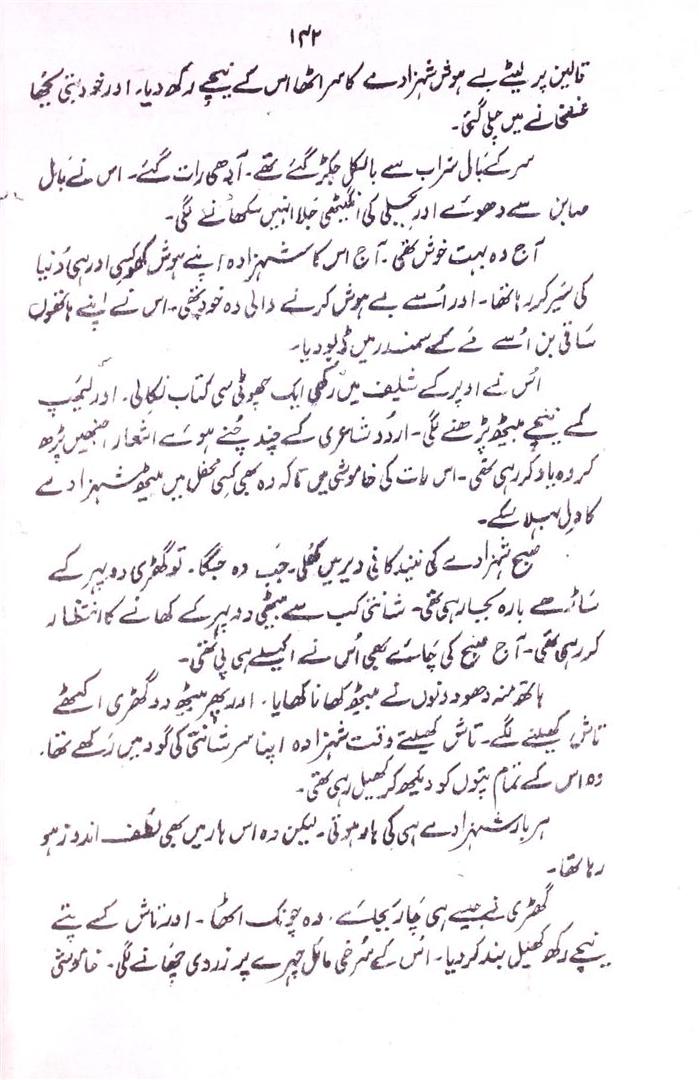 ۱۴۲
قالین پر لیٹے بے ہوش شہزادے کا سر اٹھا اس کے نیچے رکھ دیا۔ اور خود بتی بجھا
غسلخانے میں چلی گئی۔
سر کے بال شراب سے بالکل جکڑ گئے تھے۔ آدھی رات گئے۔ اس نے بال
صابن سے دھوئے اور بجلی کی انگیٹھی جلا انہیں سکھانے لگی۔
آج وہ بہت خوش تھی۔ آج اس کا شہزادہ اپنے ہوش کھو کسی اور ہی دُنیا
کی سَیر کر رہا تھا۔ اور اُسے بے ہوش کرنے والی وہ خود تھی۔ اس نے اپنے ہاتھوں
ساقی بن اُسے مے کے سمندر میں ڈبو دیا۔
اُس نے اوپر کے شلیف میں رکھی ایک چھوٹی سی کتاب نکالی۔ اور لیمپ
کے نیچے بیٹھ پڑھنے لگی۔ اردو شاعری کے چند چُنے ہوئے اشعار جنھیں پڑھ
کر وہ یاد کر رہی تھی۔ اس رات کی خاموشی میں تاکہ وہ بھی کسی محفل میں بیٹھ شہزادے
کا دِل بہلا سکے۔
صبح شہزادے کی نیند کافی دیر میں کھُلی۔ جب وہ جاگا۔ تو گھڑی دوپہر کے
ساڑھے بارہ بجا رہی تھی۔ شانتی کب سے بیٹھی دوپہر کے کھانے کا انتظار
کر رہی تھی۔ آج صبح کی چائے بھی اُس نے اکیلے ہی پی تھی۔
ہاتھ منہ دھو دونوں نے بیٹھ کھانا کھایا۔ اور پھر بیٹھ دو گھڑی اکٹھے
تاش کھیلنے لگے۔ تاش کھیلتے وقت شہزادہ اپنا سر شانتی کی گود میں رکھے تھا۔
وہ اس کے تمام پتوں کو دیکھ کر کھیل رہی تھی۔
ہر بار شہزادے ہی کی ہار ہوئی۔ لیکن وہ اس ہار میں بھی لُطف اندوز ہو
رہا تھا۔
گھڑی نے جیسے ہی چار بجائے۔ وہ چونک اٹھا۔ اور تاش کے پتے
نیچے رکھ کھیل بند کر دیا۔ اُس کے سُرخی مائل چہرے پر زردی چھانے لگی۔ خاموشی